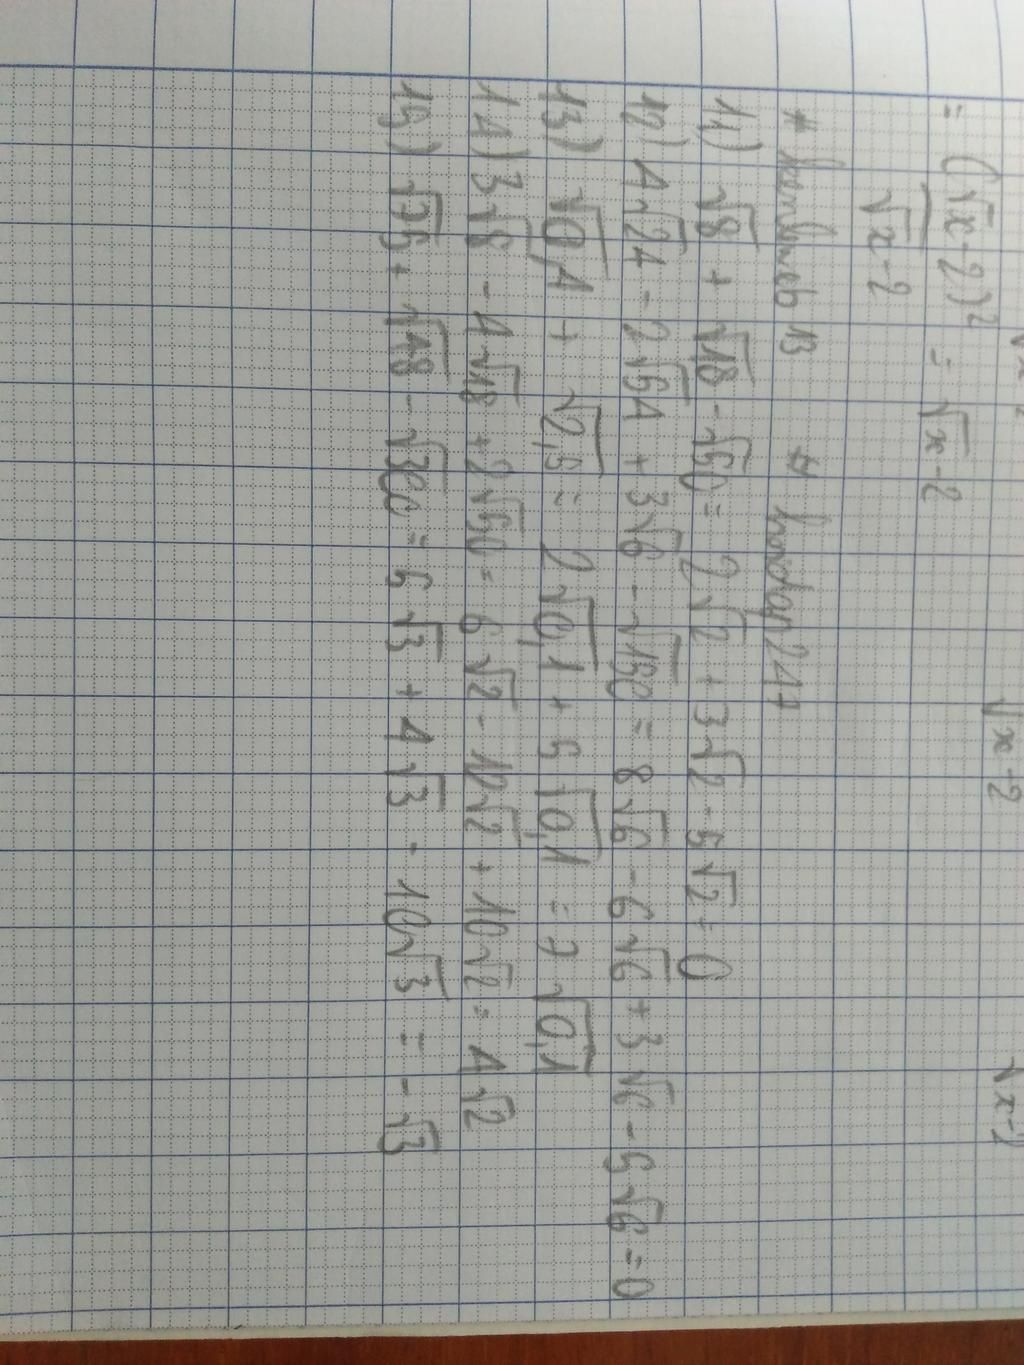 = (√x-2)² / √x-2 = √x-2
11) √8 + √18 - √50 = 2√2 + 3√2 - 5√2 = 0
12) 4√24 - 2√54 + 3√6 - √150 = 8√6 - 6√6 + 3√6 - 5√6 = 0
13) √0,4 + √2,5 = 2√0,1 + 5√0,1 = 7√0,1
14) 3√8 - 4√18 + 2√50 = 6√2 - 12√2 + 10√2 = 4√2
15) √75 + √48 - √300 = 5√3 + 4√3 - 10√3 = -√3